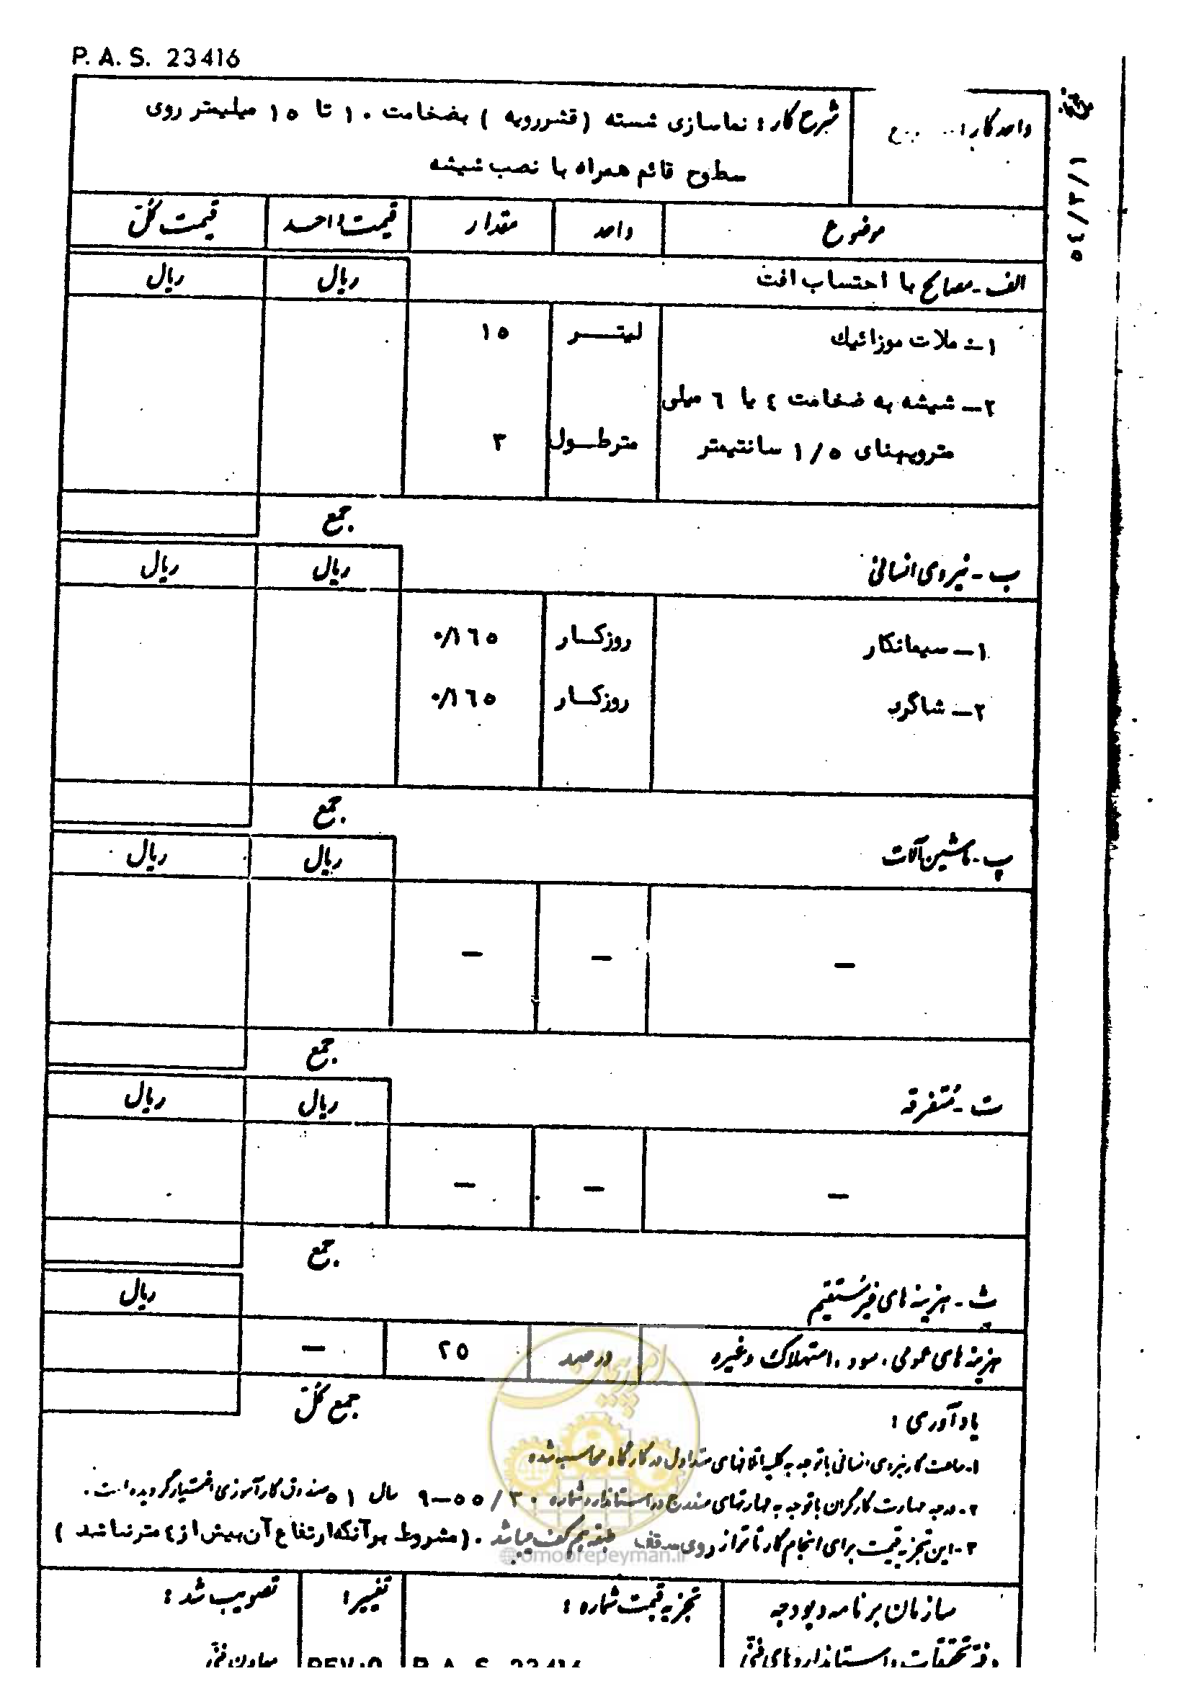 P. A. S. 23416
تاریخ ۵٤/۳/۱
واحد کار :
شرح کار : نماسازی شسته ( قشررویه ) بضخامت ۱۰ تا ۱۵ میلیمتر روی
سطوح قائم همراه با نصب شیشه
موضوع واحد مقدار قیمت واحد قیمت کل
الف - مصالح با احتساب افت ریال ریال
۱- ملات موزائیك لیتر ۱۵
۲- شیشه به ضخامت ٤ یا ٦ میلی
متروپهنای ۱/۵ سانتیمتر مترطول ۳
جمع
ب - نیروی انسانی ریال ریال
۱- سیمانکار روزکار ۰/۱٦۵
۲- شاگرد روزکار ۰/۱٦۵
جمع
پ - ماشین آلات ریال ریال
— — —
جمع
ت - متفرقه ریال ریال
— — —
جمع
ث - هزینه های غیرمستقیم ریال
هزینه های عمومی ، سود ، استهلاک وغیره درصد ۲۵ —
جمع کل
یادآوری :
۱- ساعت کار نیروی انسانی باتوجه به کلیه اتلافهای متداول در کارگاه محاسبه شده
۲- درجه مهارت کارگران باتوجه به مهارتهای مندرج در استاندارد شماره ۳۰/۵۵-۹ سال ۵۱ صندوق کارآموزی اختیار گردیده است .
۳- این تجزیه قیمت برای انجام کار تا تراز روی سقف طبقه همکف میباشد . ( مشروط برآنکه ارتفاع آن بیش از ٤ متر نباشد )
امور پیمان
@omoorepeyman.ir
سازمان برنامه و بودجه تجزیه قیمت شماره : تغییر : تصویب شد :
دفتر تحقیقات و استانداردهای فنی P. A. S. 23416 REV.0 معاون فنی